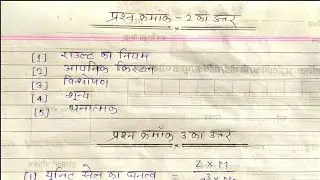 प्रश्न क्रमांक - 2 का उत्तर
[1] राउल्ट का नियम
[2] आयनिक क्रिस्टल
[3] विशोषण
[4] शून्य
[5] धनात्मक
प्रश्न क्रमांक 3 का उत्तर
[1] यूनिट सेल का घनत्व = Z × M